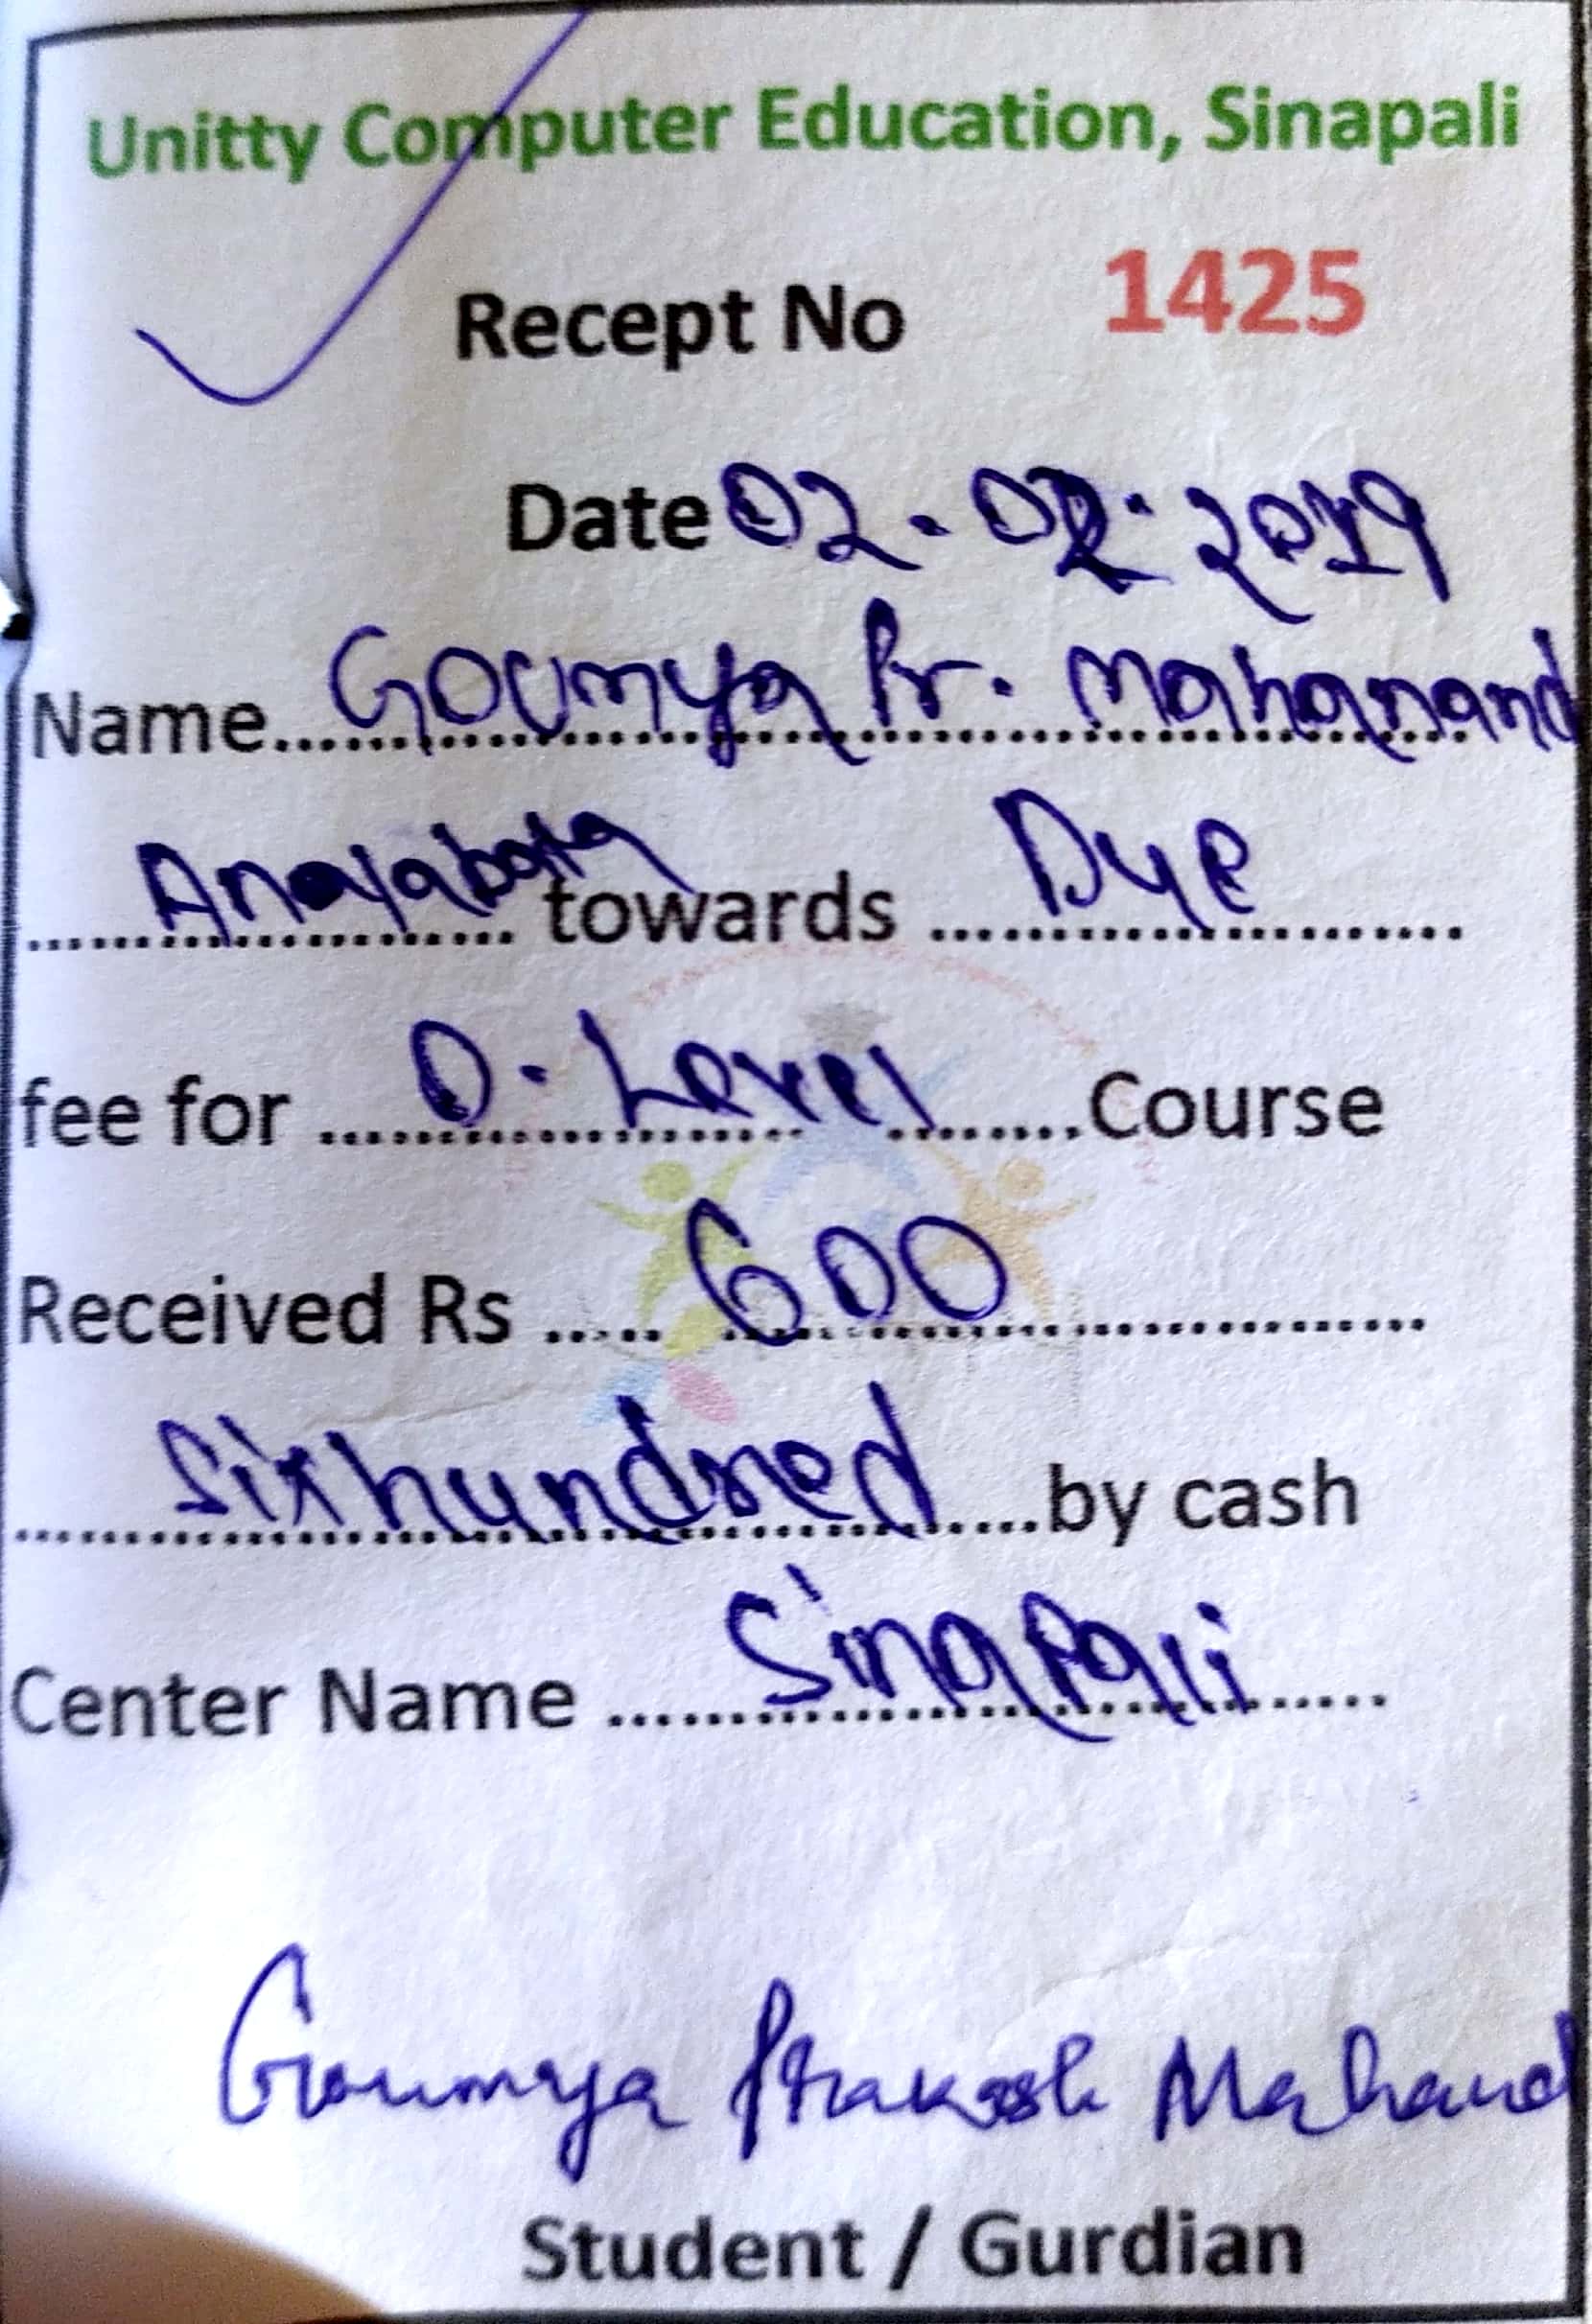 Unitty Computer Education, Sinapali
Recept No 1425
Date 02.02.2019
Name.......Goumya Pr. Mahanand
............ towards ....Due....
fee for ....O. Level........Course
Received Rs ..... 600 ..............
.......Sixhundred......by cash
Center Name ....Sinapali.....
Goumya Prakash Mahanand
Student / Gurdian